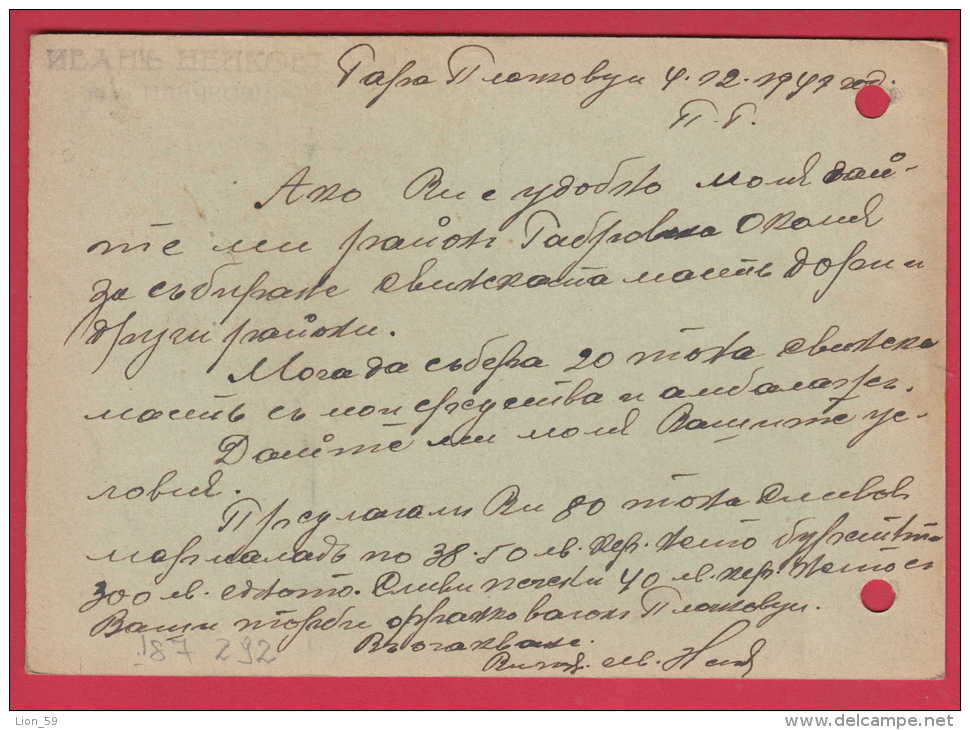 ИВАНЪ НЕНКОВЪ
Гара Плачковци 4.12.1941 год.
П. Г.
Ако Ви е удобно моля дай-
те ми район Габровска Околия
за събиране свинската масть дори и
други райони.
Мога да събера 20 тона свинска
масть съ мои средства и амбалажъ.
Дайте ми моля Вашите ус-
ловия.
Предлагамъ Ви 80 тона сливовъ
мармаладъ по 38.50 лв. кгр. нето буретата
300 лв. едното. Сливи печени 40 лв. кгр. нето съ
Ваши торби франко вагонъ Плачковци.
Въ очакване.
187 292
Lion_59
www.delcampe.net